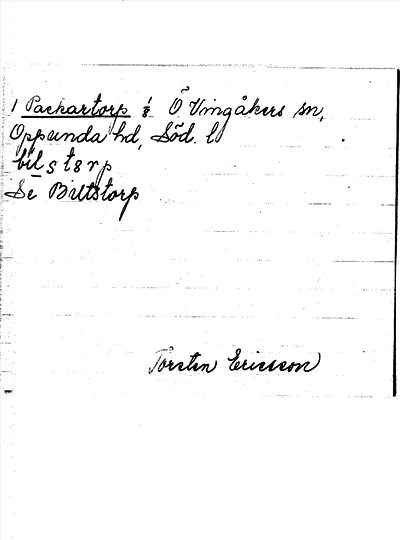 1 Packartorp i Ö Vingåkers sn,
Oppunda hd, Söd. l
bilstorp
Se Biltstorp
Torsten Ericsson